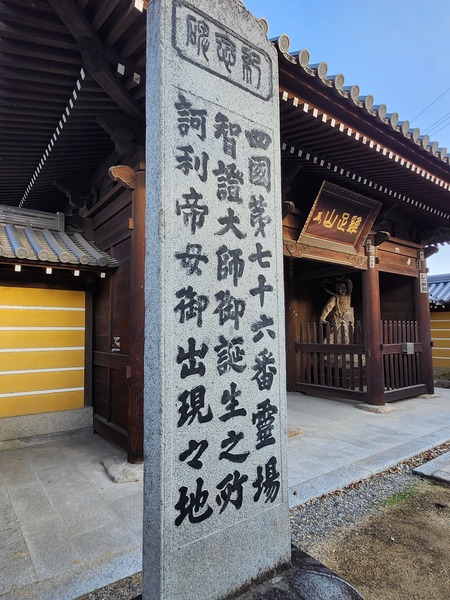 紀念碑
四國第七十六番靈場
智證大師御誕生之所
訶利帝母御出現之地
雞足山